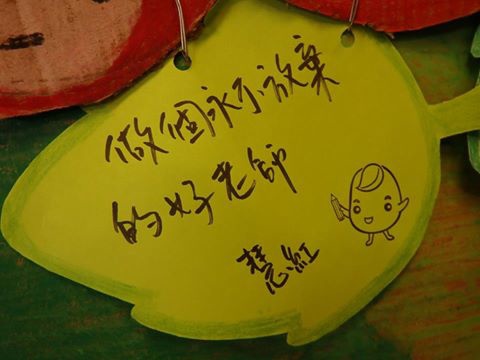 做個永不放棄
的好老師
慧紅